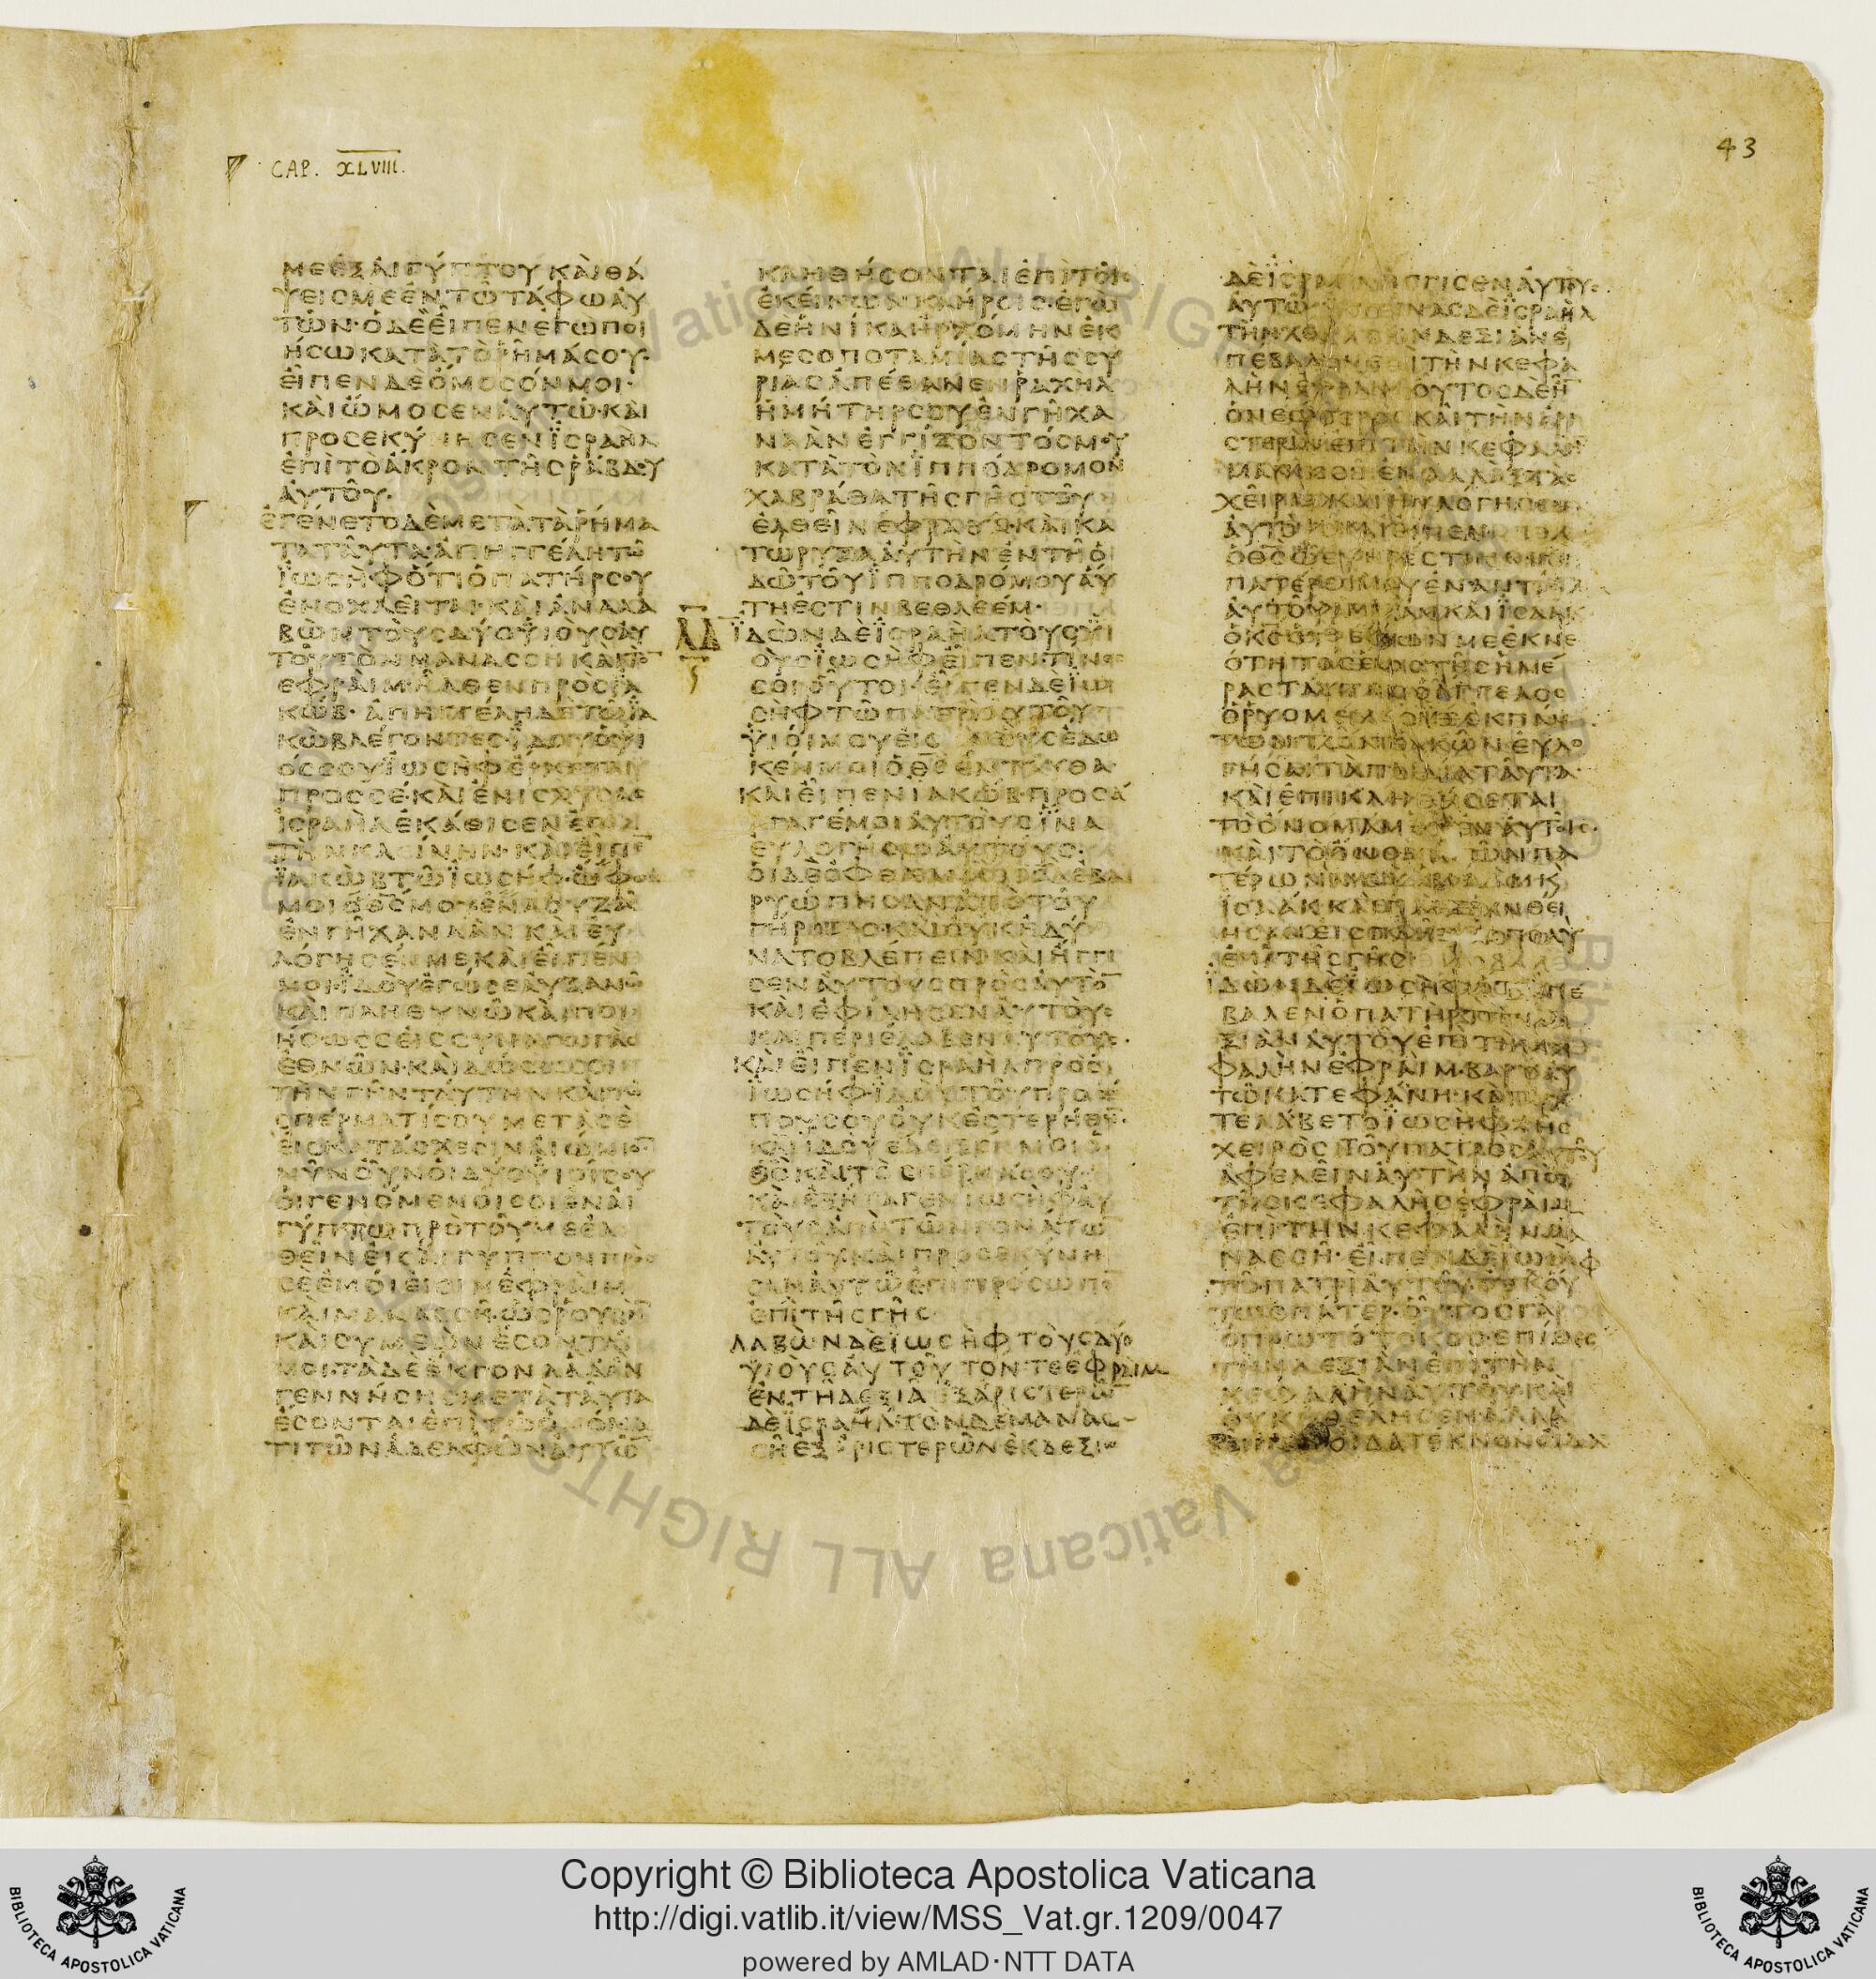 CAP. XLVIII.
43
ΜΕΕΞΑΙΓΥΠΤΟΥΚΑΙΘΑ
ΨΕΙΣΜΕΕΝΤΩΤΑΦΩΑΥ
ΤΩΝ·ΟΔΕΕΙΠΕΝΕΓΩΠΟΙ
ΗΣΩΚΑΤΑΤΟΡΗΜΑΣΟΥ·
ΕΙΠΕΝΔΕΟΜΟΣΟΝΜΟΙ·
ΚΑΙΩΜΟΣΕΝΑΥΤΩ·ΚΑΙ
ΠΡΟΣΕΚΥΝΗΣΕΝΪΣΡΑΗΛ
ΕΠΙΤΟΑΚΡΟΝΤΗΣΡΑΒΔΟΥ
ΑΥΤΟΥ·
ΕΓΕΝΕΤΟΔΕΜΕΤΑΤΑΡΗΜΑ
ΤΑΤΑΥΤΑ·ΑΠΗΓΓΕΛΗΤΩ
ΪΩΣΗΦΟΤΙΟΠΑΤΗΡΣΟΥ
ΕΝΟΧΛΕΙΤΑΙ·ΚΑΙΑΝΑΛΑ
ΒΩΝΤΟΥΣΔΥΟΥΪΟΥΣΑΥ
ΤΟΥΤΟΝΜΑΝΑΣΣΗΚΑΙΤΟ̅
ΕΦΡΑΙΜΗΛΘΕΝΠΡΟΣΪΑ
ΚΩΒ·ΑΠΗΓΓΕΛΗΔΕΤΩΪΑ
ΚΩΒΛΕΓΟΝΤΕΣ·ΪΔΟΥΟΥΙ
ΟΣΣΟΥΪΩΣΗΦΕΡΧΕΤΑΙ
ΠΡΟΣΣΕ·ΚΑΙΕΝΙΣΧΥΣΑΣ
ΪΣΡΑΗΛΕΚΑΘΙΣΕΝΕΠΙ
ΤΗΝΚΛΕΙΝΗΝ·ΚΑΙΕΙΠΕ̅
ΪΑΚΩΒΤΩΪΩΣΗΦ·
ΜΟΙΟΘ̅Σ̅ΜΟΥΕΝΛΟΥΖΑ
ΕΝΓΗΧΑΝΑΑΝΚΑΙΕΥ
ΛΟΓΗΣΕΝΜΕΚΑΙΕΙΠΕΝ
ΜΟΙΪΔΟΥΕΓΩΣΕΑΥΞΑΝΩ
ΚΑΙΠΛΗΘΥΝΩΚΑΙΠΟΙ
ΗΣΩΣΕΕΙΣΣΥΝΑΓΩΓΑΣ
ΕΘΝΩΝ·ΚΑΙΔΩΣΩΣΟΙ
ΤΗΝΓΗΝΤΑΥΤΗΝΚΑΙΤΩ
ΣΠΕΡΜΑΤΙΣΟΥΜΕΤΑΣΕ
ΕΙΣΚΑΤΑΣΧΕΣΙΝΑΙΩΝΙΟ̅
ΝΥΝΟΥΝΟΙΔΥΟΥΪΟΙΣΟΥ
ΟΙΓΕΝΟΜΕΝΟΙΣΟΙΕΝΑΙ
ΓΥΠΤΩΠΡΟΤΟΥΜΕΕΛ
ΘΕΙΝΕΙΣΑΙΓΥΠΤΟΝΠΡΟΣ
ΣΕΕΜΟΙΕΙΣΙΝΕΦΡΑΙΜ
ΚΑΙΜΑΝΑΣΣΗ·ΩΣΡΟΥΒΗ̅
ΚΑΙΣΥΜΕΩΝΕΣΟΝΤΑΙ
ΜΟΙ·ΤΑΔΕΕΚΓΟΝΑΑΑΝ
ΓΕΝΝΗΣΗΣΜΕΤΑΤΑΥΤΑ
ΕΣΟΝΤΑΙΕΠΙΤΩΟΝΟΜΑ
ΤΙΤΩΝΑΔΕΛΦΩΝΑΥΤΩ̅
ΚΛΗΘΗΣΟΝΤΑΙΕΠΙΤΟΙΣ
ΕΚΕΙΝΩΝΚΛΗΡΟΙΣ·ΕΓΩ
ΔΕΗΝΙΚΑΗΡΧΟΜΗΝΕΚ
ΜΕΣΟΠΟΤΑΜΙΑΣΤΗΣΣΥ
ΡΙΑΣΑΠΕΘΑΝΕΝΡΑΧΗΛ
ΗΜΗΤΗΡΣΟΥΕΝΓΗΧΑ
ΝΑΑΝΕΓΓΙΖΟΝΤΟΣΜΟΥ
ΚΑΤΑΤΟΝΪΠΠΟΔΡΟΜΟΝ
ΧΑΒΡΑΘΑΤΗΣΓΗΣΤΟΥ
ΕΛΘΕΙΝΕΦΡΑΘΑ·ΚΑΙΚΑ
ΤΩΡΥΞΑΑΥΤΗΝΕΝΤΗΟ
ΔΩΤΟΥΪΠΠΟΔΡΟΜΟΥΑΥ
ΤΗΕΣΤΙΝΒΕΘΛΕΕΜ·
ΪΔΩΝΔΕΪΣΡΑΗΛΤΟΥΣΥΪ
ΟΥΣΪΩΣΗΦΕΙΠΕΝ·ΤΙΝΕΣ
ΣΟΙΟΥΤΟΙ·ΕΙΠΕΝΔΕΪΩ
ΣΗΦΤΩΠΑΤΡΙΑΥΤΟΥ
ΥΪΟΙΜΟΥΕΙΣΙΝΟΥΣΕΔΩ
ΚΕΝΜΟΙΟΘ̅Σ̅ΕΝΤΑΥΘΑ·
ΚΑΙΕΙΠΕΝΪΑΚΩΒ·ΠΡΟΣΑ
ΓΑΓΕΜΟΙΑΥΤΟΥΣΪΝΑ
ΕΥΛΟΓΗΣΩΑΥΤΟΥΣ·
ΡΥΩΠΗΣΑΝΑΠΟΤΟΥ
ΓΗΡΩΣ·ΚΑΙΟΥΚΗΔΥ
ΝΑΤΟΒΛΕΠΕΙΝΚΑΙΗΓΓΙ
ΣΕΝΑΥΤΟΥΣΠΡΟΣΑΥΤΟ̅
ΚΑΙΕΦΙΛΗΣΕΝΑΥΤΟΥΣ
ΚΑΙΠΕΡΙΕΛΑΒΕΝΑΥΤΟΥΣ·
ΚΑΙΕΙΠΕΝΪΣΡΑΗΛΠΡΟΣ
ΪΩΣΗΦ·ΪΔΟΥΤΟΥΠΡΟΣΩ
ΠΟΥΣΟΥΟΥΚΕΣΤΕΡΗΘΗ̅·
ΚΑΙΪΔΟΥΕΔΕΙΞΕΝΜΟΙΟ
Θ̅Σ̅ΚΑΙΤΟΣΠΕΡΜΑΣΟΥ·
ΚΑΙΕΞΗΓΑΓΕΝΪΩΣΗΦΑΥ
ΤΟΥΣΑΠΟΤΩΝΓΟΝΑΤΩ̅
ΑΥΤΟΥΚΑΙΠΡΟΣΕΚΥΝΗ
ΣΑΝΑΥΤΩΕΠΙΠΡΟΣΩΠΟ̅
ΕΠΙΤΗΣΓΗΣ·
ΛΑΒΩΝΔΕΪΩΣΗΦΤΟΥΣΔΥΟ
ΥΪΟΥΣΑΥΤΟΥΤΟΝΤΕΕΦΡΑΙΜ
ΕΝΤΗΔΕΞΙΑΕΞΑΡΙΣΤΕΡΩ̅
ΔΕΪΣΡΑΗΛΤΟΝΔΕΜΑΝΑΣ
ΣΗΕΞΑΡΙΣΤΕΡΩΝΕΚΔΕΞΙΩ̅
ΔΕΪΣΡΑΗΛΗΓΓΙΣΕΝΑΥΤΟΥΣ
ΑΥΤΩ·ΕΚΤΕΙΝΑΣΔΕΪΣΡΑΗΛ
ΤΗΝΧΕΙΡΑΤΗΝΔΕΞΙΑΝΕ
ΠΕΒΑΛΕΝΕΠΙΤΗΝΚΕΦΑ
ΛΗΝΕΦΡΑΙΜΟΥΤΟΣΔΕΗ̅
ΟΝΕΩΤΕΡΟΣΚΑΙΤΗΝΑΡΙ
ΧΕΙΡΑΣΚΑΙΗΥΛΟΓΗΣΕΝ
ΑΥΤΟΥΑΒΡΑΑΜΚΑΙΪΣΑΑΚ
ΟΤΗΤΟΣΕΩΣΤΗΣΗΜΕ
ΡΑΣΤΑΥΤΗΣΟΑΓΓΕΛΟΣ
ΟΡΥΟΜΕΝΟΣΜΕΕΚΠΑΝ
ΤΩΝΤΩΝΚΑΚΩΝΕΥΛΟ
ΓΗΣΑΙΤΑΠΑΙΔΙΑΤΑΥΤΑ·
ΚΑΙΕΠΙΚΛΗΘΗΣΕΤΑΙ
ΤΟΟΝΟΜΑΜΟΥΕΝΑΥΤΟΙΣ·
ΚΑΙΤΟΟΝΟΜΑΤΩΝΠΑ
ΤΕΡΩΝΜΟΥΑΒΡΑΑΜΚ
ΪΣΑΑΚΚΑΙΠΛΗΘΥΝΘΕΙ
ΗΣΑΝΕΙΣΠΛΗΘΟΣΠΟΛΥ
ΕΠΙΤΗΣΓΗΣ·
ΪΔΩΝΔΕΪΩΣΗΦΟΤΙΕΠΕ
ΒΑΛΕΝΟΠΑΤΗΡΤΗΝΔΕ
ΞΙΑΝΑΥΤΟΥΕΠΙΤΗΝΚΕ
ΦΑΛΗΝΕΦΡΑΙΜ·ΒΑΡΥΑΥ
ΤΩΚΑΤΕΦΑΝΗ·ΚΑΙΑΝ
ΤΕΛΑΒΕΤΟΪΩΣΗΦΤΗΣ
ΧΕΙΡΟΣΤΟΥΠΑΤΡΟΣΑΥΤΟΥ
ΑΦΕΛΕΙΝΑΥΤΗΝΑΠΟ
ΤΗΣΚΕΦΑΛΗΣΕΦΡΑΙΜ
ΕΠΙΤΗΝΚΕΦΑΛΗΝΜΑ
ΝΑΣΣΗ·ΕΙΠΕΝΔΕΪΩΣΗΦ
ΤΩΠΑΤΡΙΑΥΤΟΥ·ΟΥΧΟΥ
ΤΩΣΠΑΤΕΡ·ΟΥΤΟΣΓΑΡ
ΟΠΡΩΤΟΤΟΚΟΣ·ΕΠΙΘΕΣ
ΤΗΝΔΕΞΙΑΝΕΠΙΤΗΝ
ΚΕΦΑΛΗΝΑΥΤΟΥ·ΚΑΙ
ΟΥΚΗΘΕΛΗΣΕΝ·ΑΛΛΑ
ΕΙΠΕΝΟΙΔΑΤΕΚΝΟΝΟΙΔΑ
Copyright © Biblioteca Apostolica Vaticana
http://digi.vatlib.it/view/MSS_Vat.gr.1209/0047
powered by AMLAD·NTT DATA
BIBLIOTECA APOSTOLICA VATICANA
BIBLIOTECA APOSTOLICA VATICANA